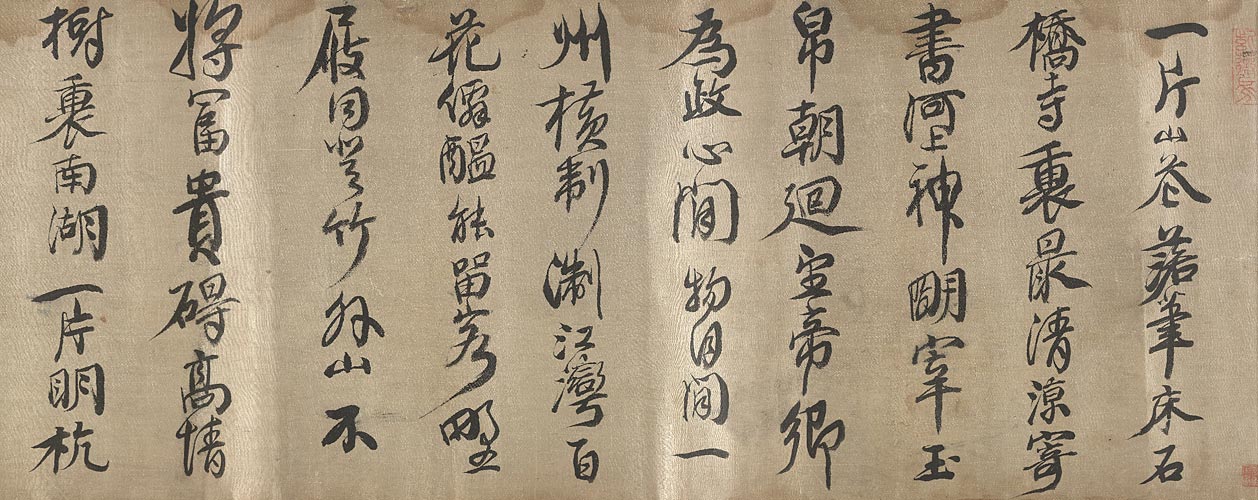 一片山茶落筆床石
橋寺裏最清涼寄
書河上神明宰玉
帛朝迴望帝鄉
為政心閒物自閒一
州橫制浙江灣百
花僊醞能留客野
屐同登竹外山不
將富貴礙高情
樹裏南湖一片明杭